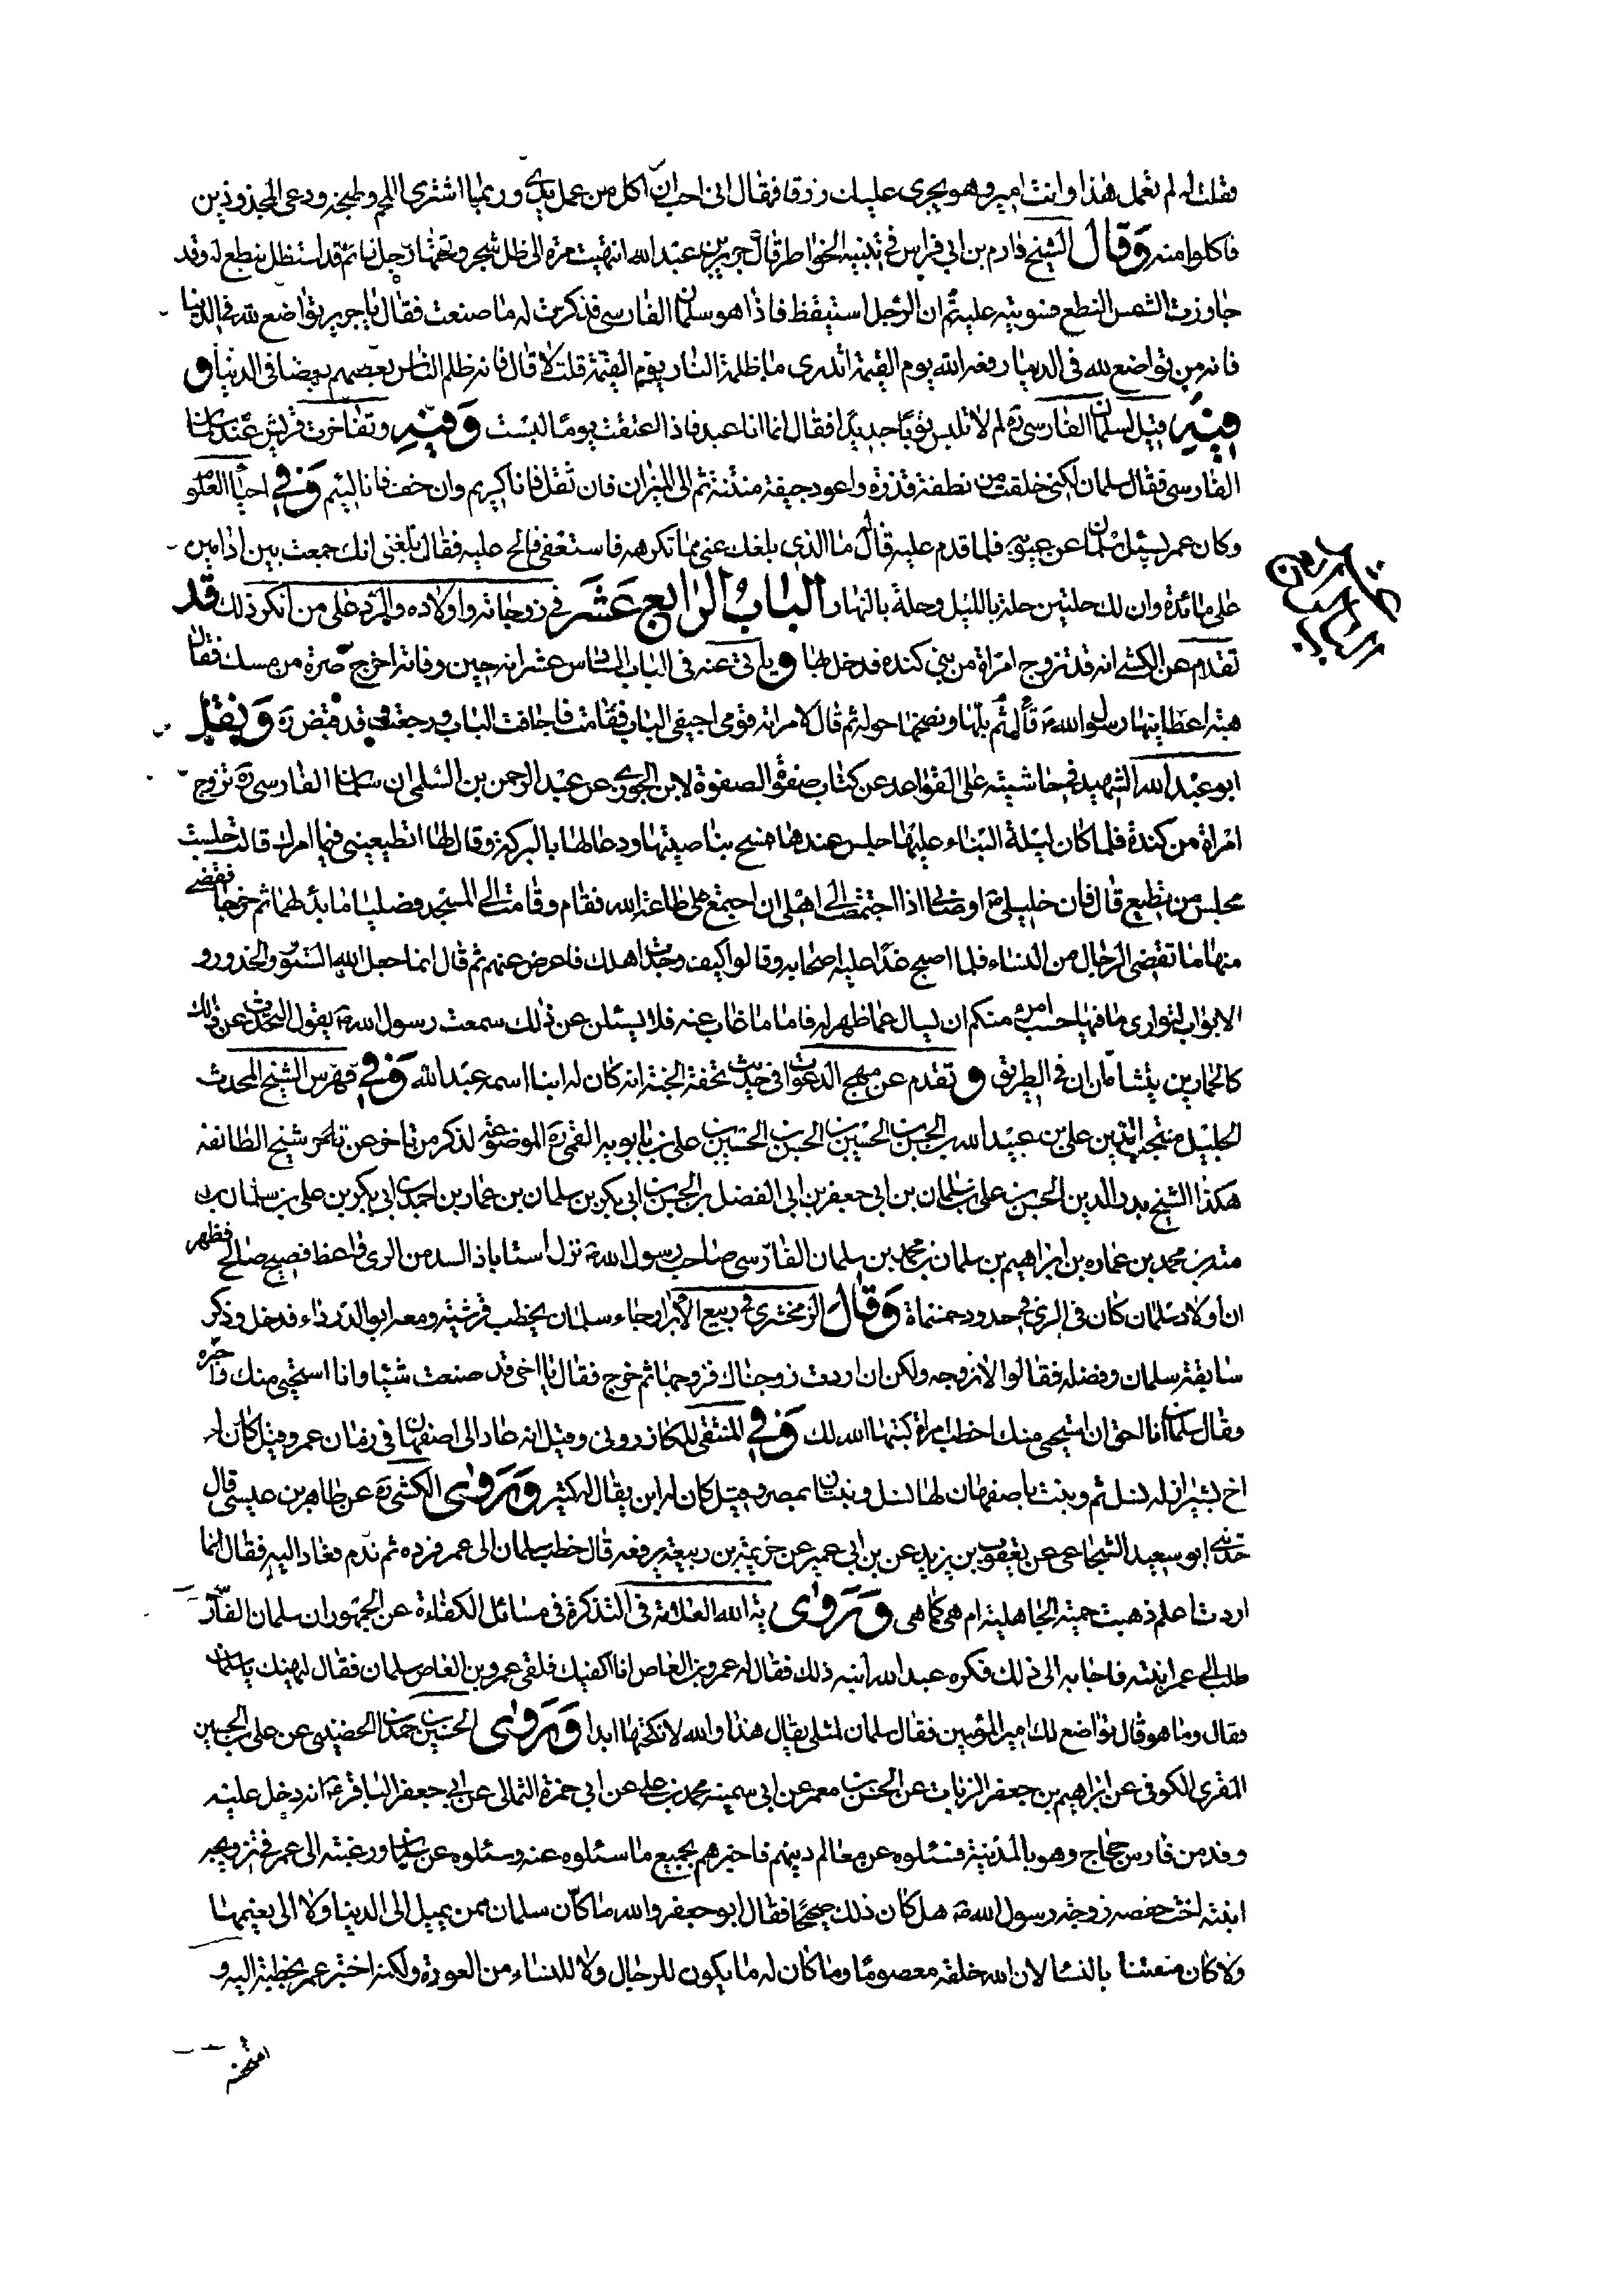 فقلت له لم تعمل هذا وانت امير وهو يجرى عليك رزقا فقال انى احب ان آكل من عمل يدى وربما اشترى اللحم وطبخه ودعى المجذوذين
فاكلوا منه وقال الشيخ ورام بن ابى فراس فى تنبيه الخواطر قال جرير بن عبد الله انتهيت مرة الى ظل شجر وتحتها رجل نائم قد استظل بنطع له وقد
جاوزت الشمس النطع فسويته عليه ثم ان الرجل استيقظ فاذا هو سلمان الفارسى فذكرت له ما صنعت فقال يا جرير تواضع لله فى الدنيا
فانه من تواضع لله فى الدنيا رفعه الله يوم القيمة اتدرى ما ظلمة النار يوم القيمة قلت لا قال فانه ظلم الناس بعضهم بعضا فى الدنيا و
فيه قيل لسلمان الفارسى ره لم لا تلبس ثوبا جديدا فقال انما انا عبد فاذا عتقت يوما لبست وفيه وتفاخرت قريش عند سلمان
الفارسى فقال سلمان لكنى خلقت من نطفة قذرة واعود جيفة منتنة ثم الى الميزان فان ثقل فانا كريم وان خف فانا لئيم وفى احياء العلوم
وكان عمر يسئل سلمان عن عيوبه فلما قدم عليه قال له ما الذى بلغك عنى مما تكرهه فاستعفى فالح عليه فقال بلغنى انك جمعت بين ادامين
على مائدة وان لك حلتين حلة بالليل وحلة بالنهار الباب الرابع عشر فى زوجاته واولاده والرد على من انكر ذلك قد
تقدم عن الكشى انه قد تزوج امراة من بنى كنده فدخل بها وياتى عنه فى الباب السادس عشر انه حين وفاته اخرج صرة من مسك فقال
هبة اعطانيها رسول الله ص قال ثم بلها ونضحها حوله ثم قال لامراته قومى اجيفى الباب فقامت فاجافت الباب ورجعت وقد قبض ره ونقل
ابو عبد الله الشهيد فى حاشيته على القواعد عن كتاب صفة الصفوة لابن الجوزى عن عبد الرحمن بن السلمى ان سلمان الفارسى ره تزوج
امراة من كندة فلما كان ليلة البناء عليها جلس عندها فمسح بناصيتها ودعا لها بالبركة وقال لها اتطيعينى فيما امرك قالت جلست
مجلس من يطيع قال فان خليلى ص اوصانى اذا اجتمعت الى اهلى ان اجتمع على طاعة الله فقام وقامت الى المسجد فصليا ما بدا لهما ثم خرجا فقضى
منها ما تقضى الرجال من النساء فلما اصبح غدا عليه اصحابه وقالوا كيف وجدت اهلك فاعرض عنهم ثم قال انما جعل الله الستور والخدور و
الابواب لتوارى ما فيها حسب امرء منكم ان يسال عما ظهر له فاما ما غاب عنه فلا يسئلن عن ذلك سمعت رسول الله ص يقول المتحدث عن ذلك
كالحمارين يتشامان فى الطريق وتقدم عن مهج الدعوات فى حديث تحفة الجنة انه كان له ابنا اسمه عبد الله وفى فهرس الشيخ المحدث
الجليل منتجب الدين على بن عبيد الله بن الحسن بن الحسين بن الحسن بن الحسين بن على بن بابويه القمى ره الموضوعة لذكر من تاخر عن شيخ الطائفة
هكذا الشيخ بدر الدين الحسن بن على بن سلمان بن ابى جعفر بن ابى الفضل بن الحسن بن ابى بكر بن سلمان بن عمار بن احمد بن ابى بكر بن على بن سلمان بن
منه بن محمد بن عماره بن ابراهيم بن سلمان بن محمد بن سلمان الفارسى صاحب رسول الله ص نزل اشتاباذ السد من الرى واعظ فصيح صالح فظهر
ان اولاد سلمان كان فى الرى فى حدود خمسماة وقال الزمخشرى فى ربيع الابرار وجاء سلمان يخطب قرشية ومعه ابو الدرداء فدخل وذكر
سابقة سلمان وفضله فقالوا لا نزوجه ولكن ان اردت زوجناك فزوجها ثم خرج فقال يا اخى قد صنعت شيئا وانا استحيى منك واخبره
وقال سلمان انا احق ان استحيى منك اخطب امراة كتبها الله لك وفى المنتقى للكازرونى وقيل انه عاد الى اصفهان فى زمان عمر وقيل كان له
اخ بشيراز له نسل ثم وبنت باصفهان لها نسل وبنتان بمصر وقيل كان له ابن يقال له كثير وروى الكشى ره عن طاهر بن عيسى قال
حدثنى ابو سعيد الشجاعى عن يعقوب بن يزيد عن بن ابى عمير عن خزيمة بن ربيعة يرفعه قال خطب سلمان الى عمر فرده ثم ندم فعاد اليه فقال انما
اردت اعلم ذهبت حمية الجاهلية ام هى كما هى وروى اية الله العلامة فى التذكرة فى مسائل الكفائة عن الجمهور ان سلمان الفارسى
طلب الى عمر ابنته فاجابه الى ذلك فكره عبد الله ابنه ذلك فقال له عمرو بن العاص انا اكفيك فلقى عمرو بن العاص سلمان فقال ليهنك يا سلمان
فقال وما هو قال تواضع لك امير المؤمنين فقال سلمان لمثلى يقال هذا والله لا نكحتها ابدا وروى الحسين بن حمدان الحضينى عن على بن الحسين
المقرى الكوفى عن ابراهيم بن جعفر الزيات عن الحسن بن معمر عن ابى سمينة محمد بن على عن ابى حمزة الثمالى عن ابى جعفر الباقر ع انه دخل عليه
وفد من فارس حجاج وهو بالمدينة فسئلوه عن معالم دينهم فاخبرهم بجميع ما سئلوه عنه وسئلوه عن سلمان ورغبته الى عمر فى تزويجه
ابنته اخت حفصه زوجة رسول الله ص هل كان ذلك صحيحا فقال ابو جعفر والله ما كان سلمان ممن يميل الى الدنيا ولا الى نعيمها
ولا كان ممتعنا بالنسا لان الله خلقه معصوما وما كان له ما يكون للرجال ولا للنساء من العورة ولكنه اختبر عمر بخطبة اليه و
امتحنه